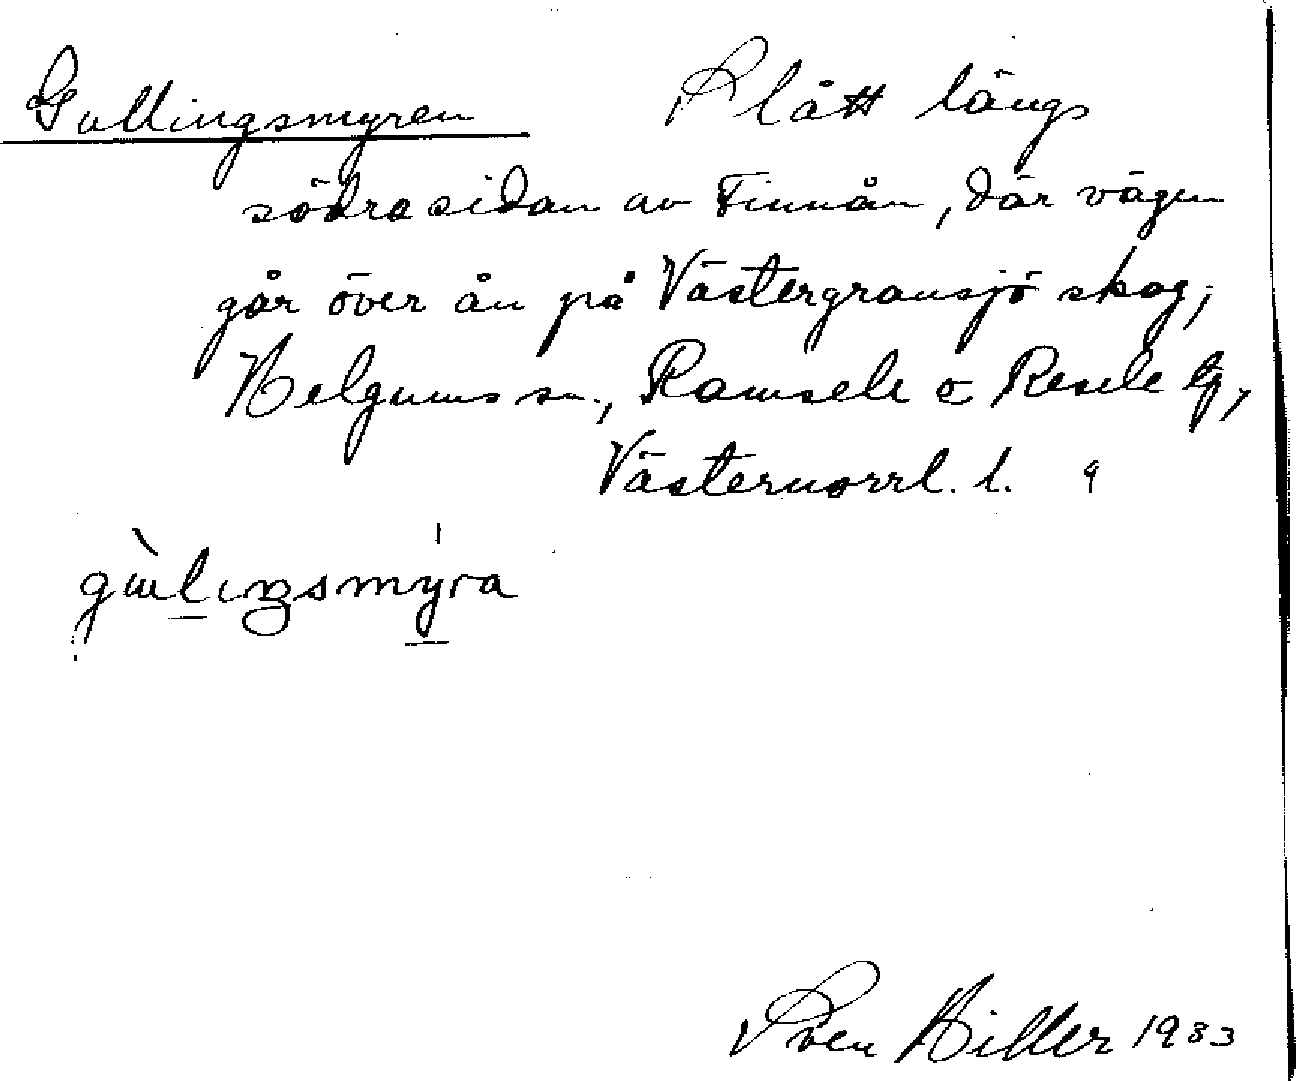 Gullingsmyren Slått längs
södra sidan av Finnån, där vägen
går över ån på Västergransjö skog;
Helgums sn., Ramsele o Resele tg,
Västernorrl. l.
Sven Hiller 1933